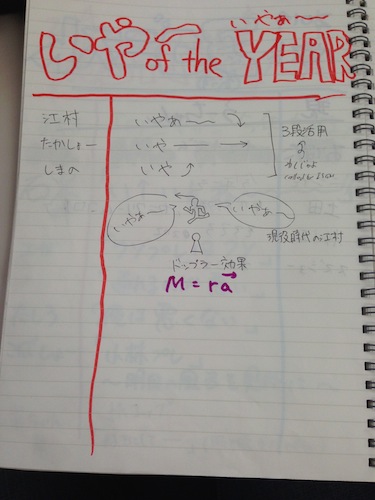 いやぁ〜
いや of the YEAR
江村 いやぁ〜
たかしょー いや―
しまの いや
3段活用
の
いやぁ〜 いやぁ〜
現役時代の江村
ドップラー効果
M = ra